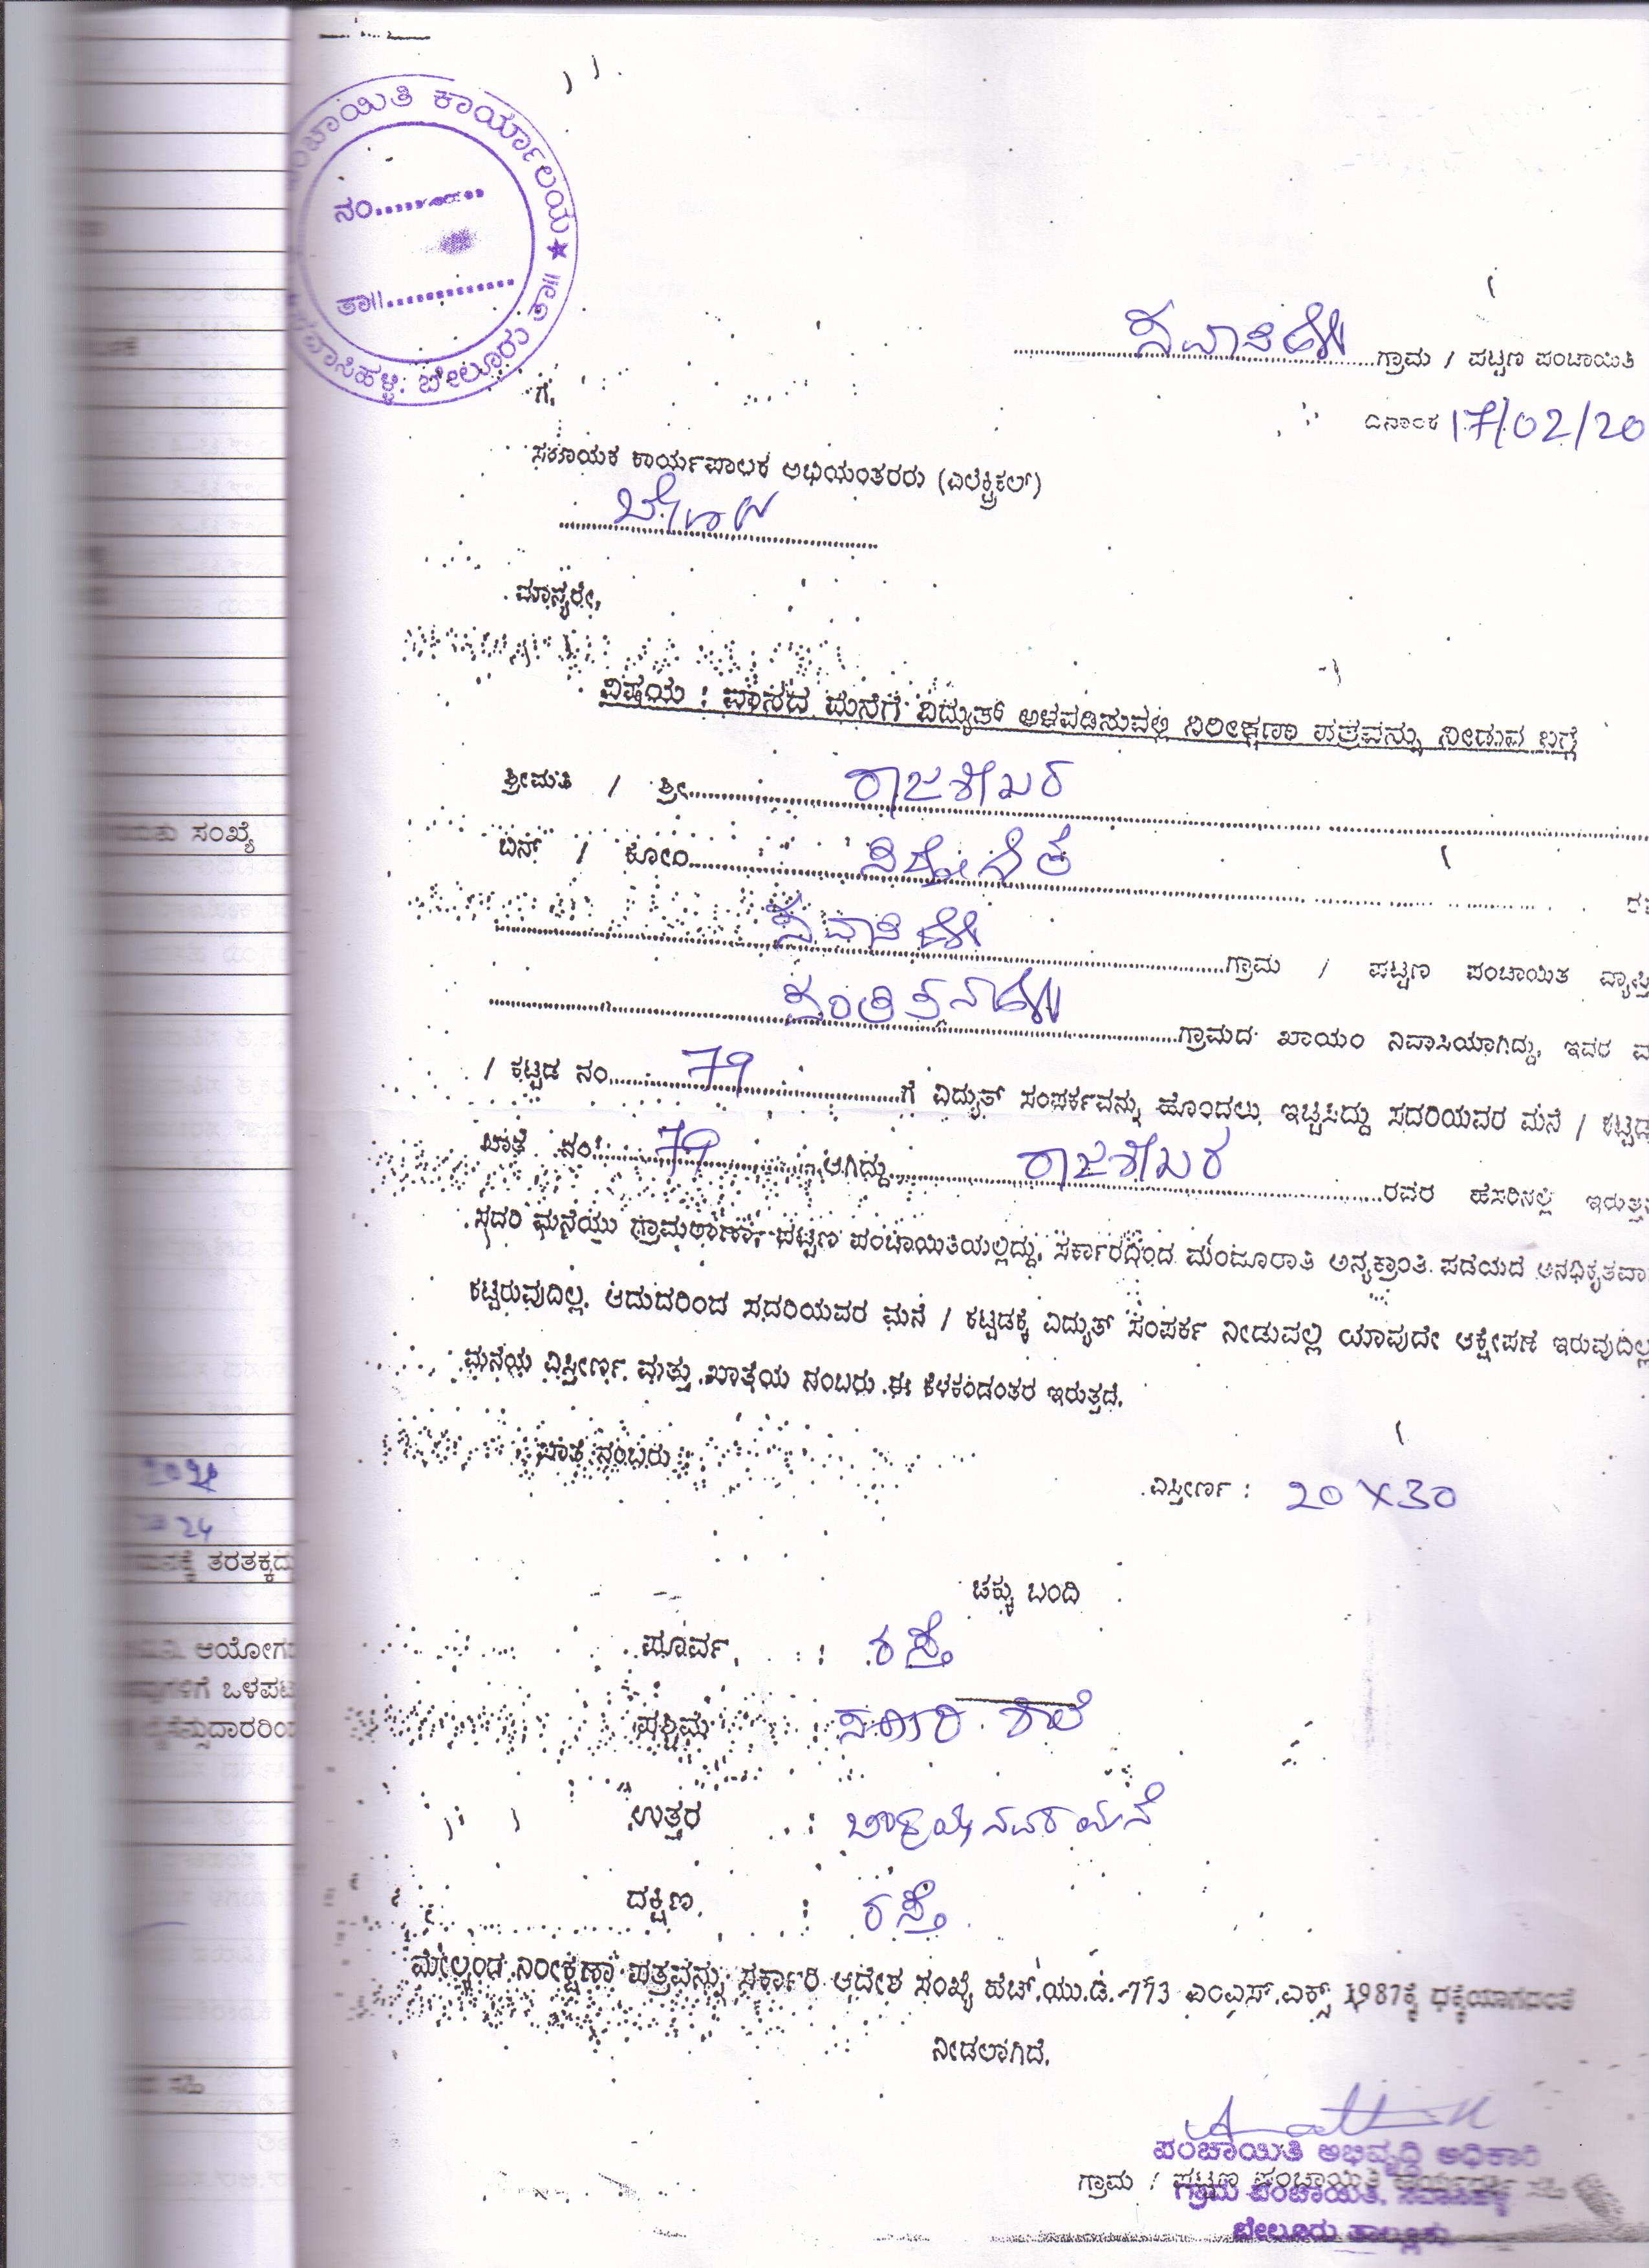 ಪಂಚಾಯಿತಿ ಕಾರ್ಯಾಲಯ ★
ನಂ..............
ತಾ॥..............
ಬೇಲೂರು ತಾ॥
ಗ್ರಾಮ / ಪಟ್ಟಣ ಪಂಚಾಯಿತಿ
ದಿನಾಂಕ 17/02/20
ಗೆ,
ಸಹಾಯಕ ಕಾರ್ಯಪಾಲಕ ಅಭಿಯಂತರರು (ಎಲೆಕ್ಟ್ರಿಕಲ್)
ಮಾನ್ಯರೇ,
ವಿಷಯ : ವಾಸದ ಮನೆಗೆ ವಿದ್ಯುತ್ ಅಳವಡಿಸುವಲ್ಲಿ ನಿರೀಕ್ಷಣಾ ಪತ್ರವನ್ನು ನೀಡುವ ಬಗ್ಗೆ
ಶ್ರೀಮತಿ / ಶ್ರೀ ರಾಜಶೇಖರ
ಬಿನ್ / ಕೋಂ
ಗ್ರಾಮ / ಪಟ್ಟಣ ಪಂಚಾಯಿತಿ ವ್ಯಾಪ್ತಿ
ಗ್ರಾಮದ ಖಾಯಂ ನಿವಾಸಿಯಾಗಿದ್ದು, ಇವರ
/ ಕಟ್ಟಡ ನಂ. 79 ಗೆ ವಿದ್ಯುತ್ ಸಂಪರ್ಕವನ್ನು ಹೊಂದಲು ಇಚ್ಚಿಸಿದ್ದು ಸದರಿಯವರ ಮನೆ / ಕಟ್ಟಡ
ಖಾತೆ ನಂ. 79 ಆಗಿದ್ದು ರಾಜಶೇಖರ ರವರ ಹೆಸರಿನಲ್ಲಿ ಇರುತ್ತ
ಸದರಿ ಮನೆಯು ಗ್ರಾಮಠಾಣಾ, ಪಟ್ಟಣ ಪಂಚಾಯಿತಿಯಲ್ಲಿದ್ದು, ಸರ್ಕಾರದಿಂದ ಮಂಜೂರಾತಿ ಅನ್ಯಕ್ರಾಂತಿ ಪಡೆಯದೆ ಅನಧಿಕೃತವಾ
ಕಟ್ಟಿರುವುದಿಲ್ಲ. ಆದುದರಿಂದ ಸದರಿಯವರ ಮನೆ / ಕಟ್ಟಡಕ್ಕೆ ವಿದ್ಯುತ್ ಸಂಪರ್ಕ ನೀಡುವಲ್ಲಿ ಯಾವುದೇ ಆಕ್ಷೇಪಣೆ ಇರುವುದಿಲ್ಲ
ಮನೆಯ ವಿಸ್ತೀರ್ಣ ಮತ್ತು ಖಾತೆಯ ನಂಬರು ಈ ಕೆಳಕಂಡಂತರ ಇರುತ್ತದೆ.
ಖಾತೆ ನಂಬರು :
ವಿಸ್ತೀರ್ಣ : 20 X 30
ಚಕ್ಕು ಬಂದಿ
ಪೂರ್ವ : ರಸ್ತೆ
ಪಶ್ಚಿಮ : ಸರ್ಕಾರಿ ಶಾಲೆ
ಉತ್ತರ :
ದಕ್ಷಿಣ : ರಸ್ತೆ
ಮೇಲ್ಕಂಡ ನಿರೀಕ್ಷಣಾ ಪತ್ರವನ್ನು ಸರ್ಕಾರಿ ಆದೇಶ ಸಂಖ್ಯೆ ಹೆಚ್.ಯು.ಡಿ.-773 ಎಂಎಸ್.ಎಕ್ಸ್ 1987ಕ್ಕೆ ಧಕ್ಕೆಯಾಗದಂತೆ
ನೀಡಲಾಗಿದೆ.
ಪಂಚಾಯಿತಿ ಅಭಿವೃದ್ಧಿ ಅಧಿಕಾರಿ
ಗ್ರಾಮ / ಪಟ್ಟಣ ಪಂಚಾಯಿತಿ ಕಾರ್ಯದರ್ಶಿ ಸಹಿ
ಗ್ರಾಮ ಪಂಚಾಯಿತಿ,
ಬೇಲೂರು ತಾಲ್ಲೂಕು
ಸಂಖ್ಯೆ
24
ತರತಕ್ಕದು
ಆಯೋಗ
ಗಳಿಗೆ ಒಳಪಟ
ಲೈಸೆನ್ಸುದಾರರಿಂ
ಸಹಿ